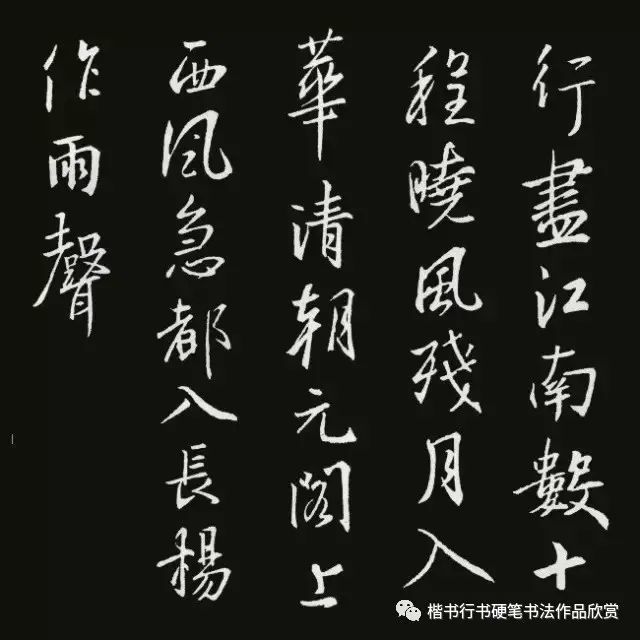 行盡江南數十
程曉風殘月入
華清朝元閣上
西风急都入長楊
作雨聲
楷书行书硬笔书法作品欣赏